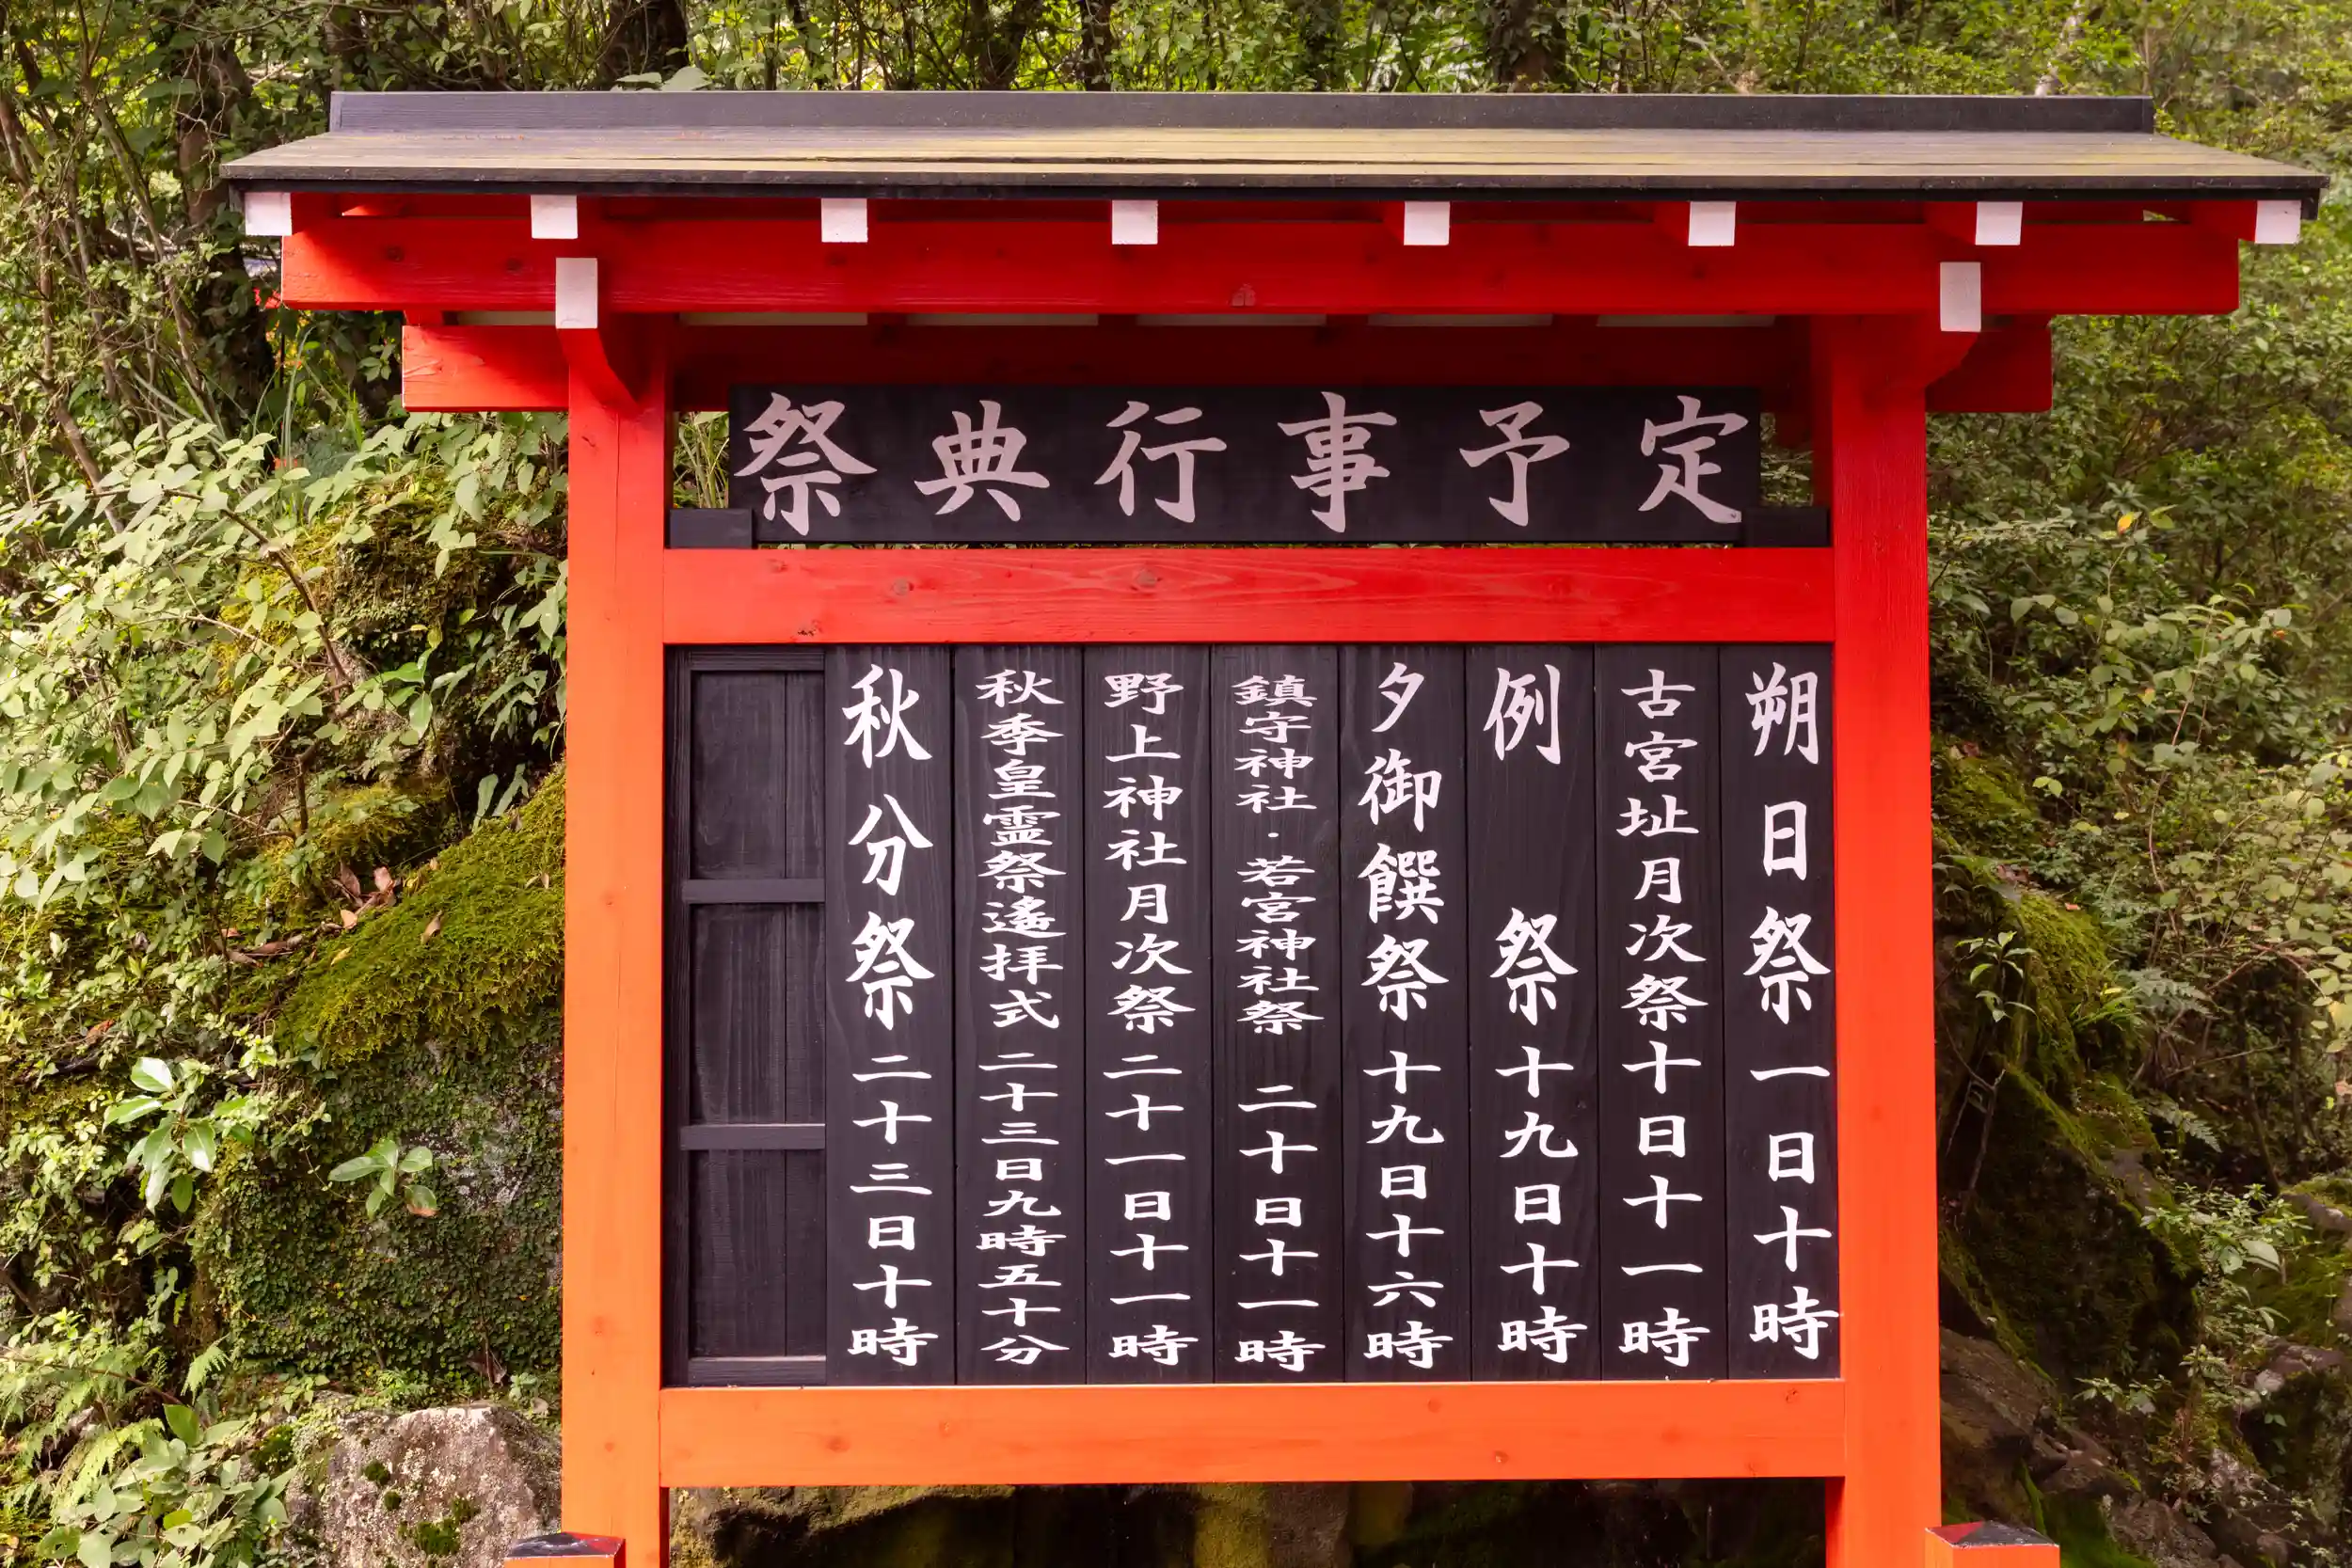 祭典行事予定
朔日祭一日十時
古宮址月次祭十日十一時
例祭十九日十時
夕御饌祭十九日十六時
鎮守神社・若宮神社祭二十日十一時
野上神社月次祭二十一日十一時
秋季皇霊祭遙拝式二十三日九時五十分
秋分祭二十三日十時